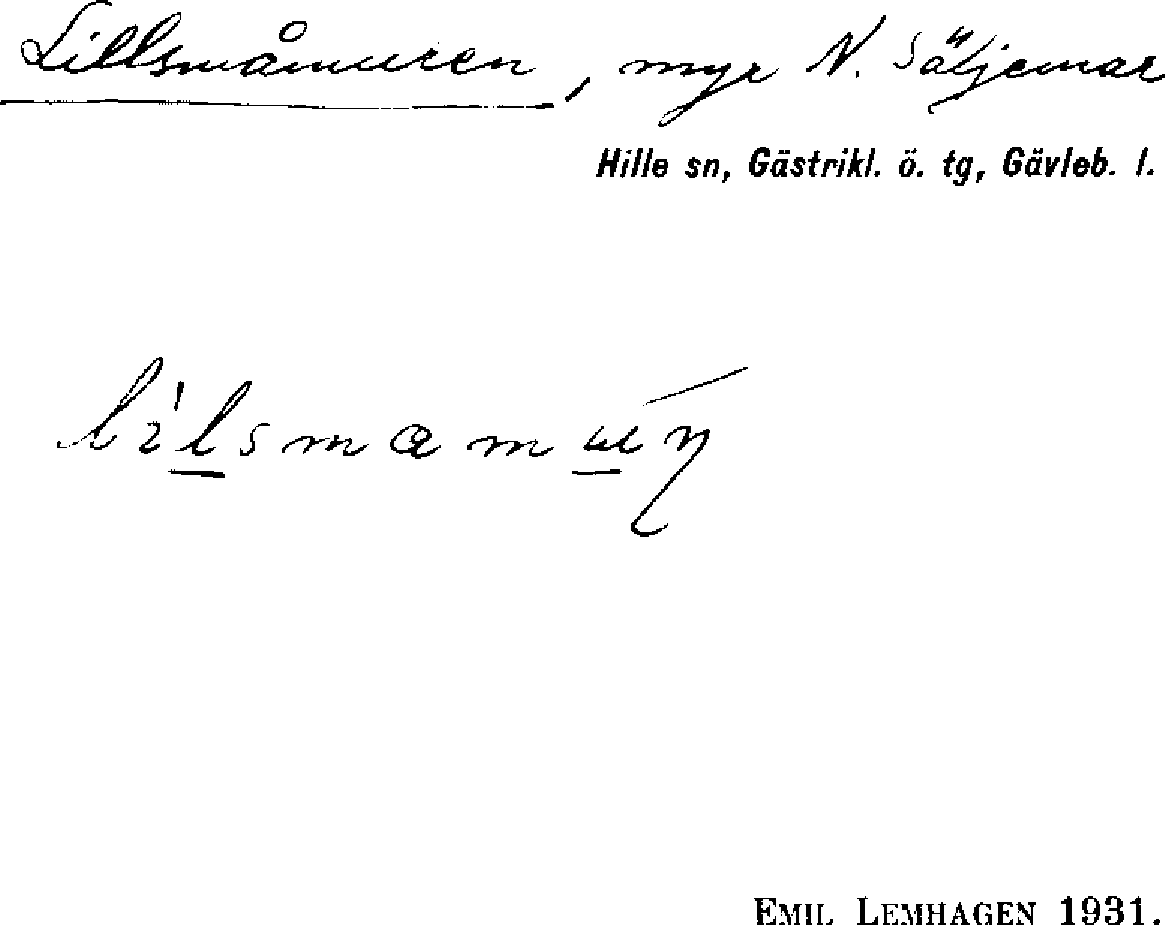 Lillsmåmuren, myr N. Säljemar
Hille sn, Gästrikl. ö. tg, Gävleb. l.
EMIL LEMHAGEN 1931.